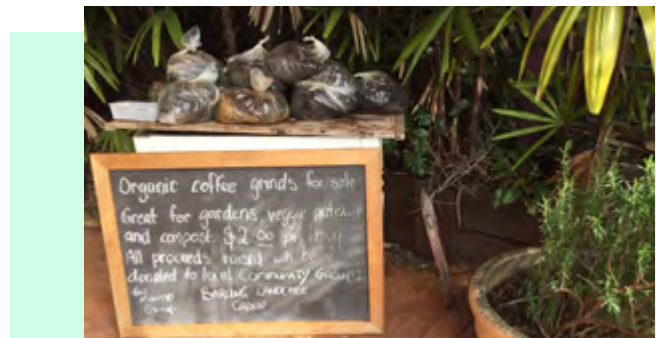 Organic coffee grinds for sale
Great for gardens, veggie patches
and compost. $2.00 per
All proceeds raised will be
donated to local Community Groups